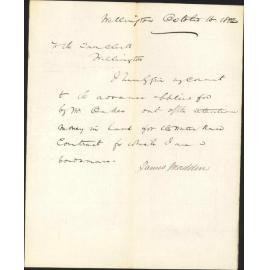 Wellington October 16 1882
To the Town Clerk
Wellington
I hereby give my consent
to the advance applied for
by Mr. out of the retention
money in hand for the Water Race
Contract for which I am a
bondsman.
James Madden